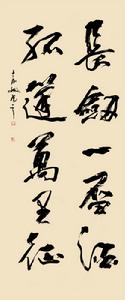 長劍一盃酒
孤蓬萬里征